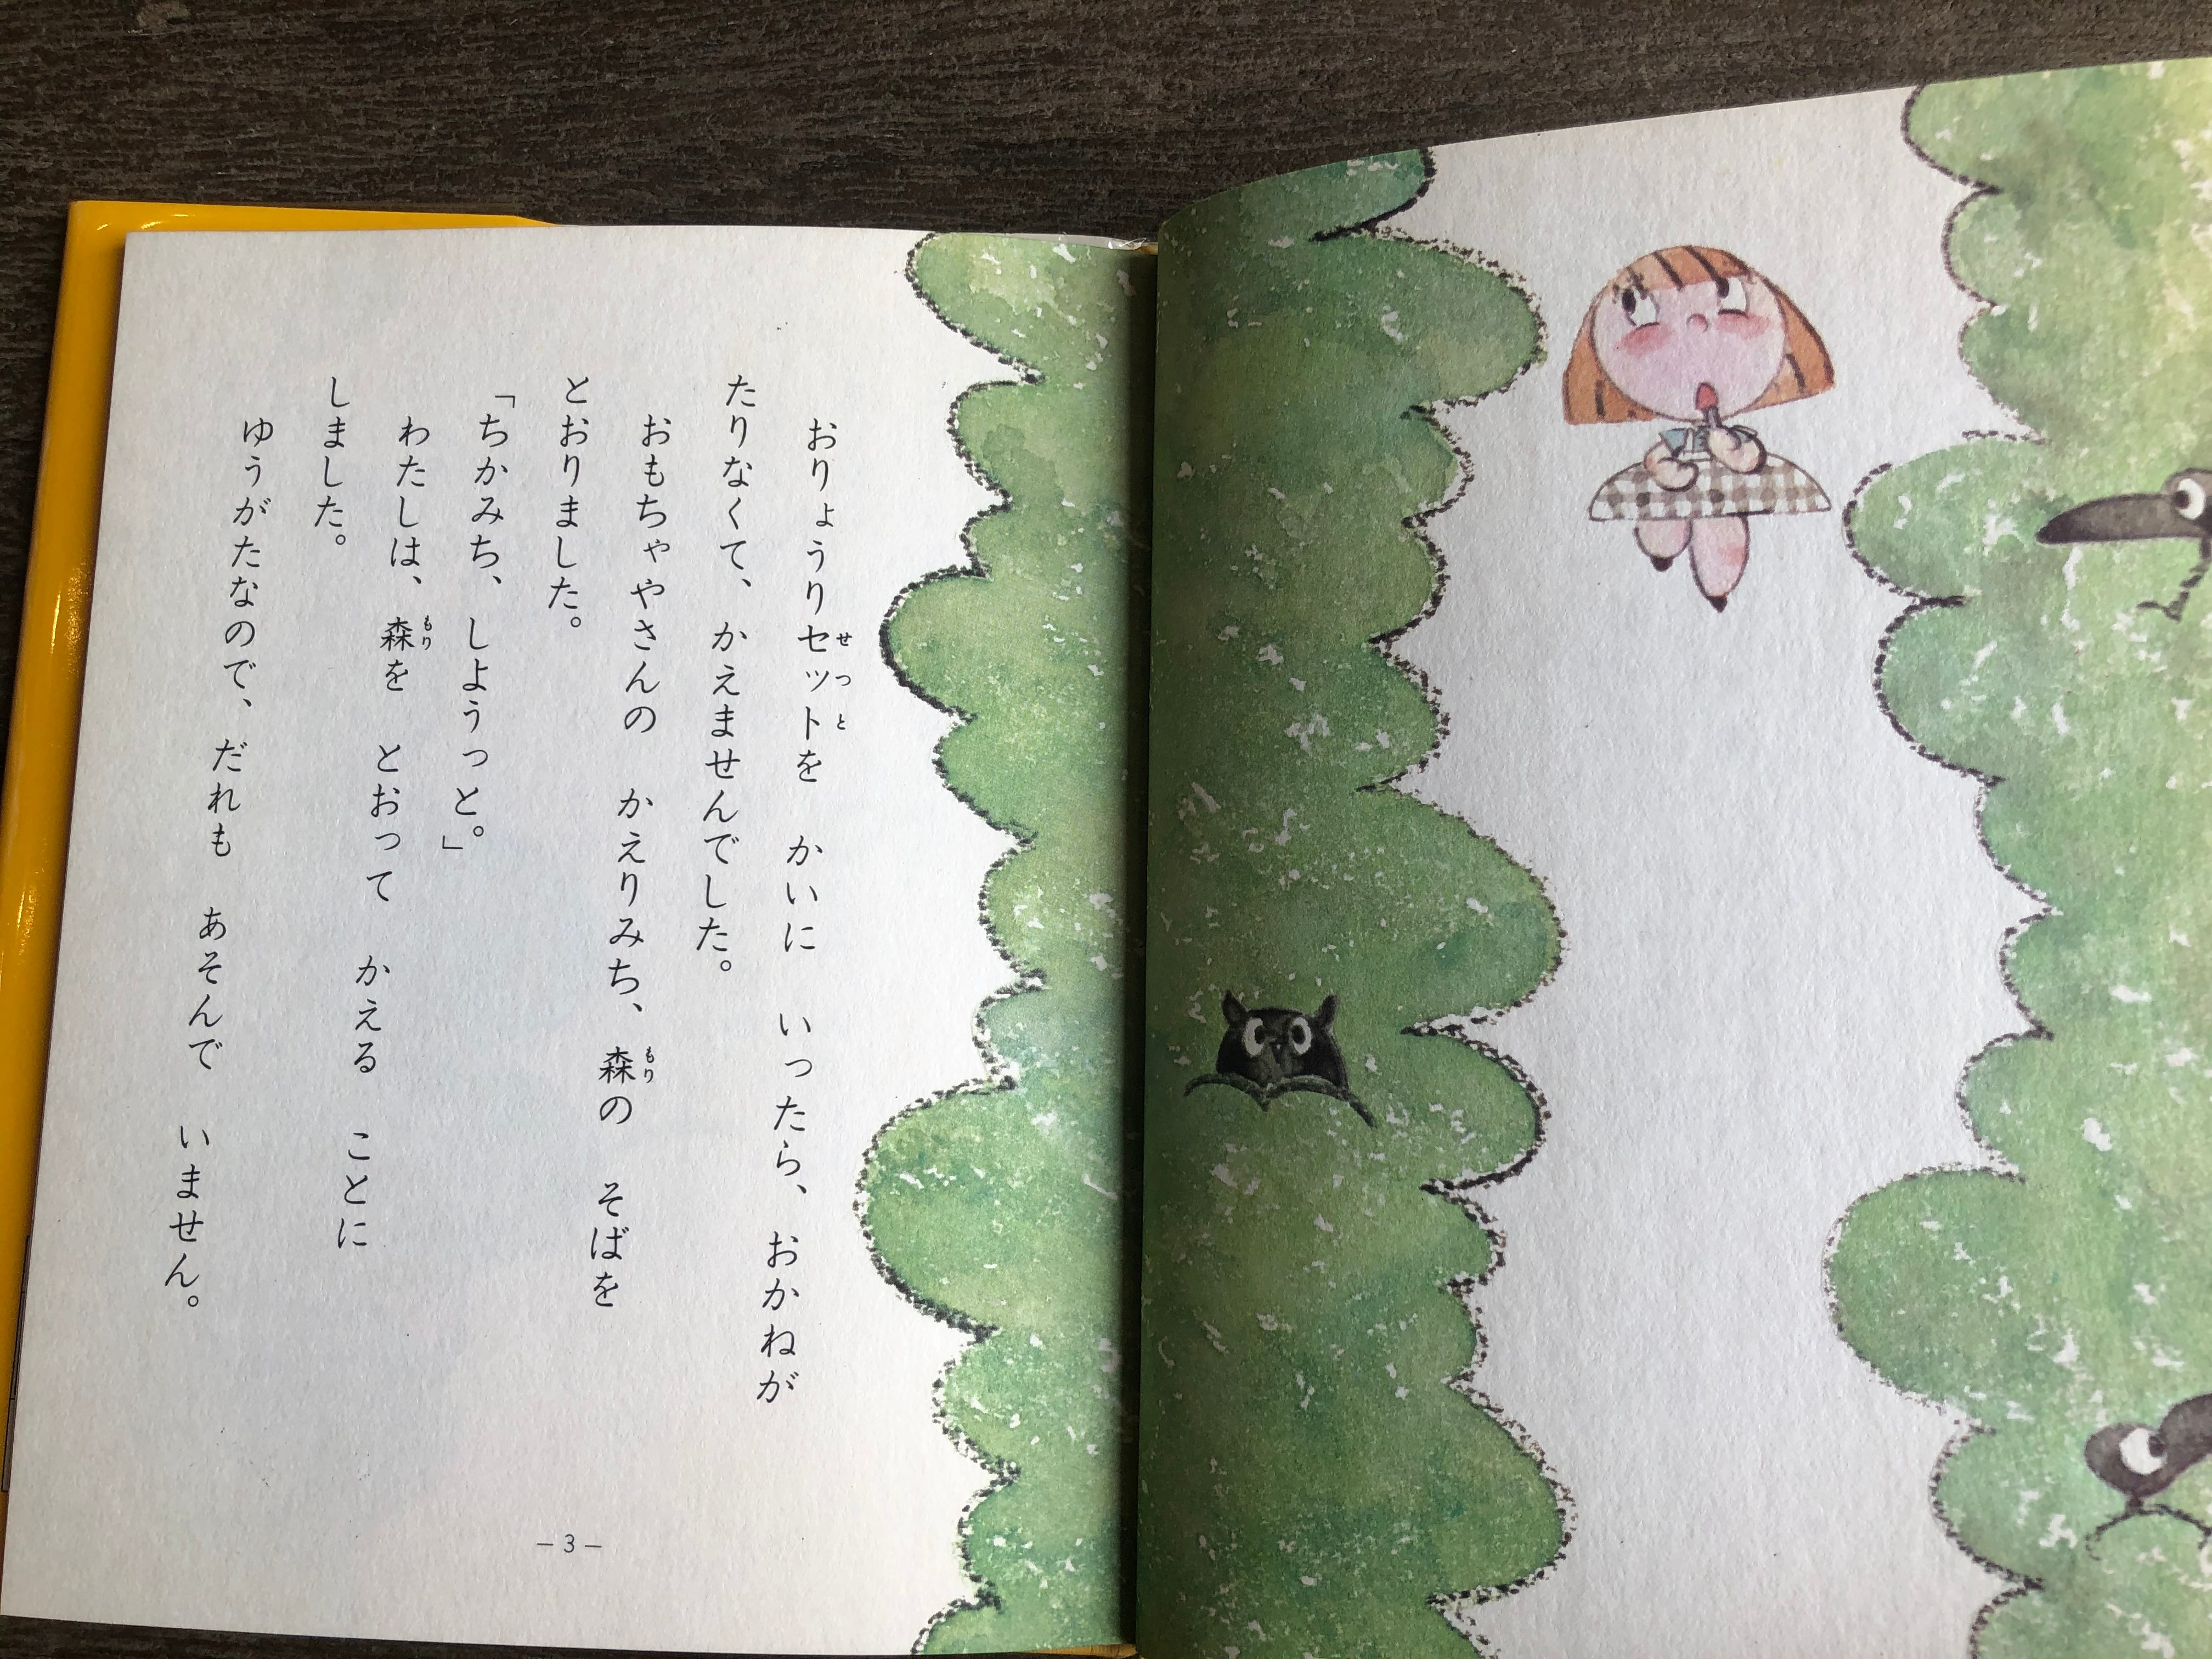 おりょうりセットを　かいに　いったら、おかねが
たりなくて、かえませんでした。
おもちゃやさんの　かえりみち、森の　そばを
とおりました。
「ちかみち、しようっと。」
わたしは、森を　とおって　かえる　ことに
しました。
ゆうがたなので、だれも　あそんで　いません。
— 3 —